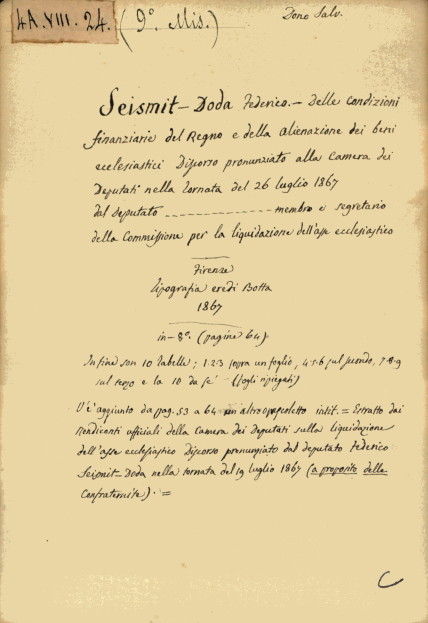 4A.VIII. 24. (9° Mis.)
Dono Salv.
Seismit-Doda Federico. - Delle Condizioni
finanziarie del Regno e della Alienazione dei beni
ecclesiastici Discorso pronunziato alla Camera dei
Deputati nella tornata del 26 luglio 1867
dal Deputato ---------------- membro e segretario
della Commissione per la liquidazione dell'asse ecclesiastico
Firenze
tipografia eredi Botta
1867
in-8°. (pagine 64).
In fine son 10 tabelle; 1.2.3 sopra un foglio, 4.5.6 sul secondo, 7.8.9
sul terzo e la 10 da sé (fogli ripiegati)
V'è aggiunto da pag. 53 a 64 un altro opuscoletto intit. = Estratto dai
Rendiconti ufficiali della Camera dei Deputati sulla liquidazione
dell'asse ecclesiastico Discorso pronunziato dal deputato Federico
Seismit-Doda nella tornata del 19 luglio 1867 (a proposito delle
Confraternite). =
C